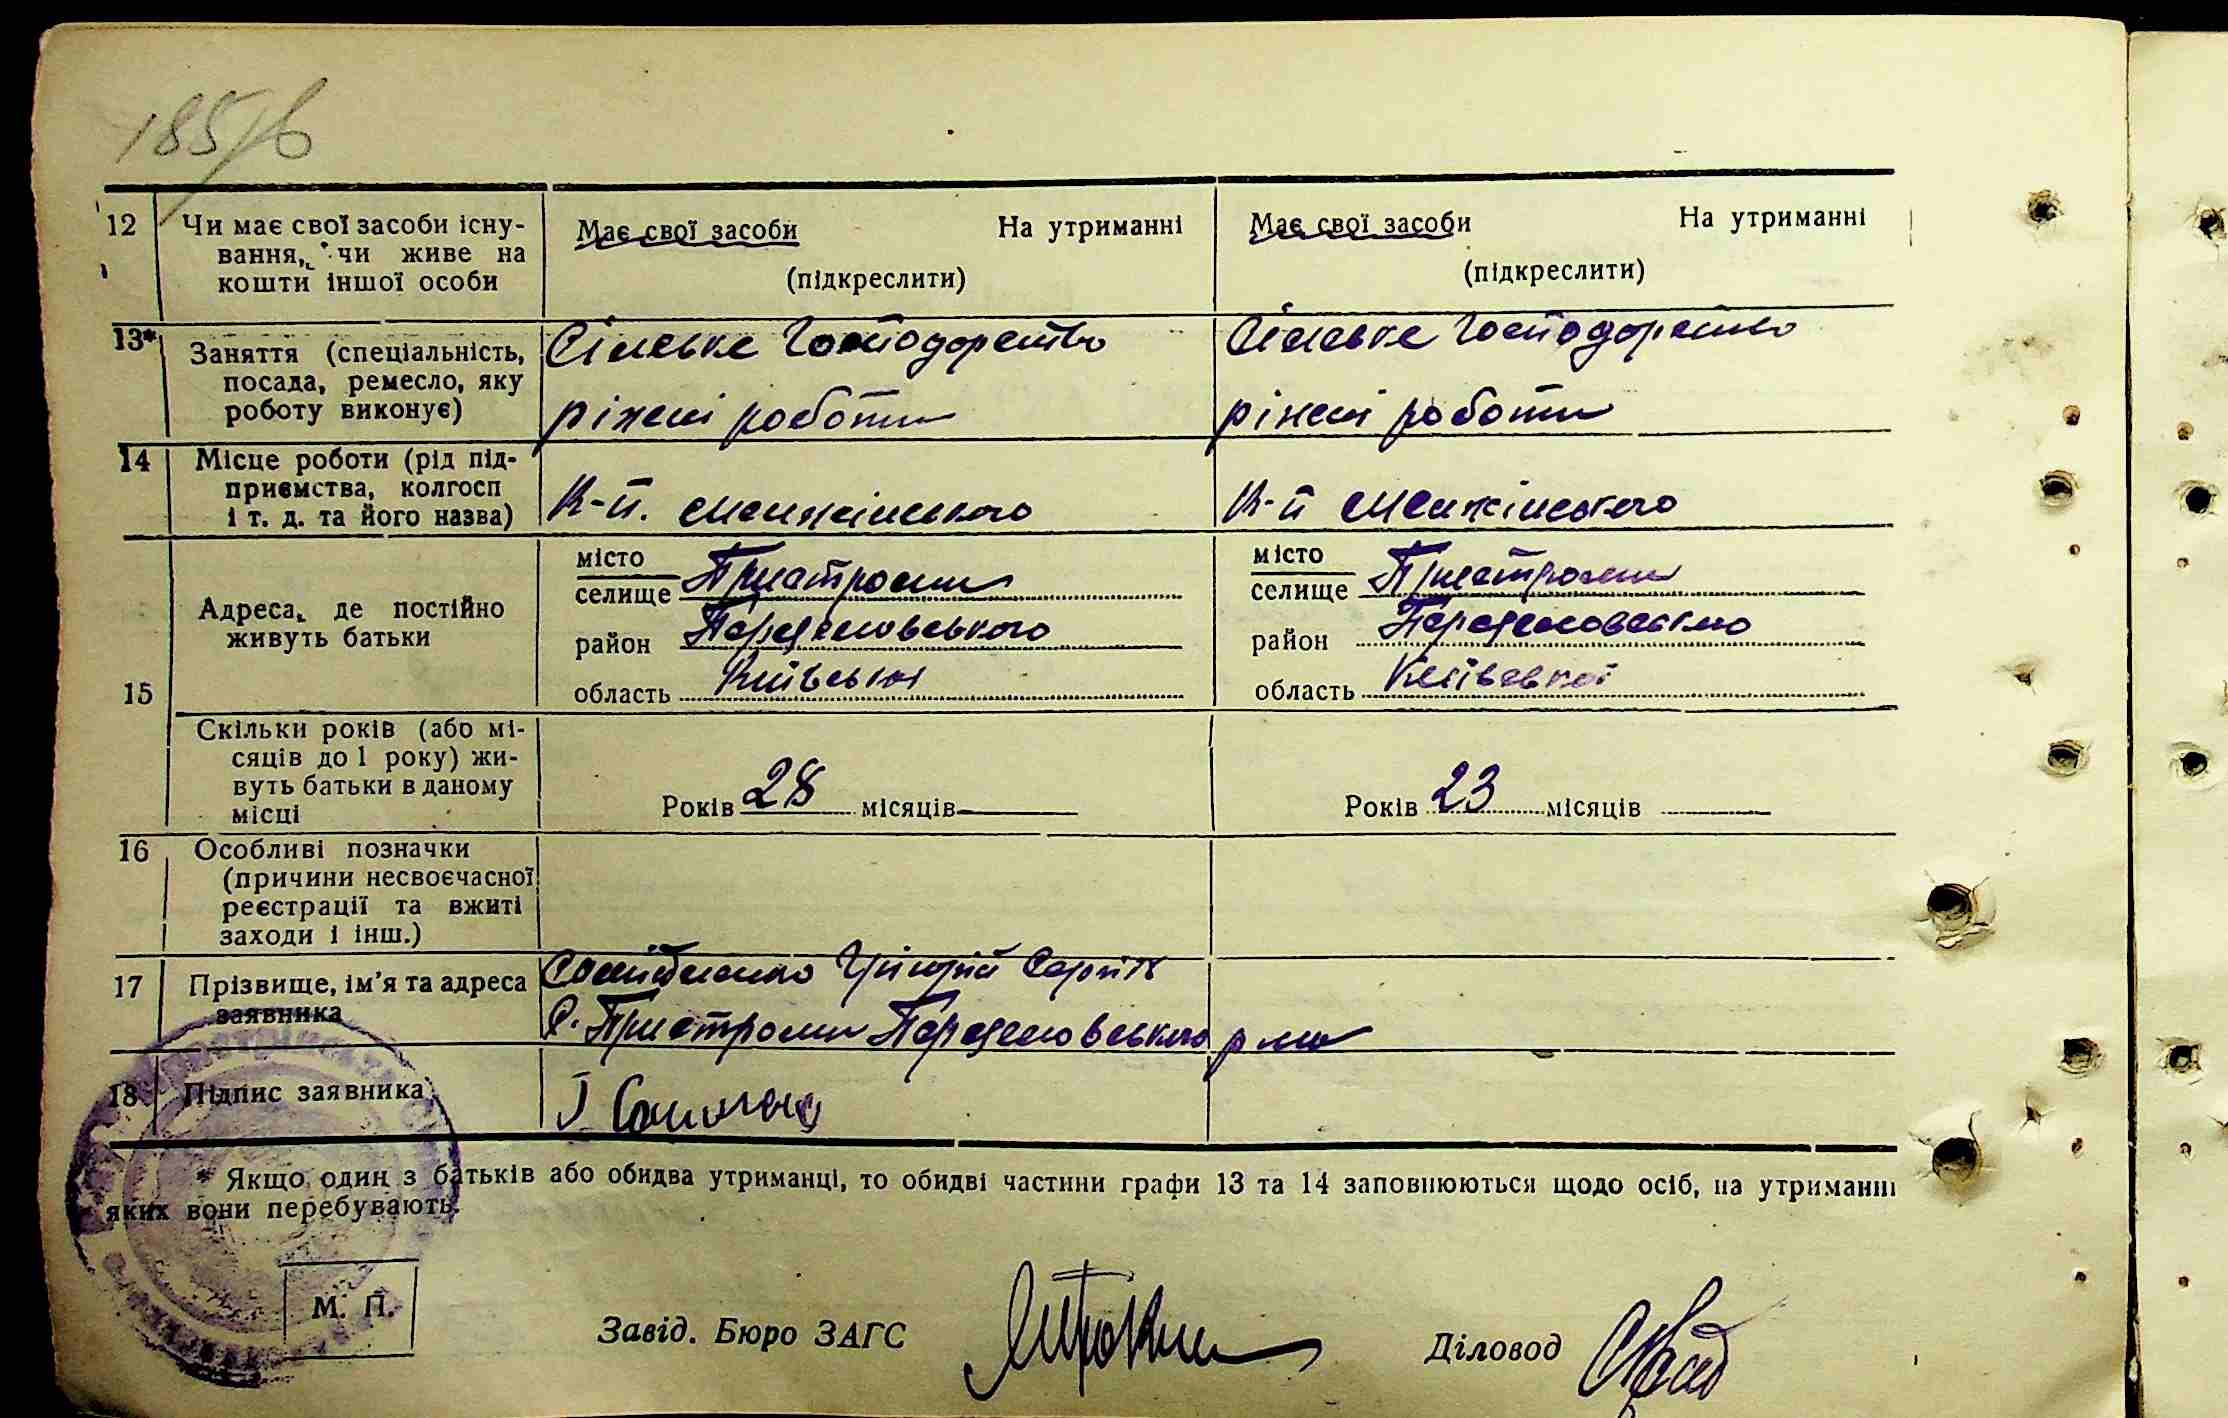 185/в
12 Чи має свої засоби існу-
вання, чи живе на
кошти іншої особи
Має свої засоби На утриманні
(підкреслити)
Має свої засоби На утриманні
(підкреслити)
13* Заняття (спеціальність,
посада, ремесло, яку
роботу виконує)
Сільське Господарство
ріжні роботи
Сільське Господарство
ріжні роботи
14 Місце роботи (рід під-
приємства, колгосп
і т. д. та його назва)
К-п. Менжінського
К-п Менжінського
15 Адреса, де постійно
живуть батьки
місто
селище Пристроми
район Переяславського
область Київської
місто
селище Пристроми
район Переяславського
область Київської
Скільки років (або мі-
сяців до 1 року) жи-
вуть батьки в даному
місці
Років 28 місяців
Років 23 місяців
16 Особливі позначки
(причини несвоєчасної
реєстрації та вжиті
заходи і інш.)
17 Прізвище, ім'я та адреса
заявника
Григорій Сергій
с. Пристроми Переяславського р-ну
18 Підпис заявника
* Якщо один з батьків або обидва утриманці, то обидві частини графи 13 та 14 заповнюються щодо осіб, на утриманні
яких вони перебувають.
М. П.
Завід. Бюро ЗАГС
Діловод